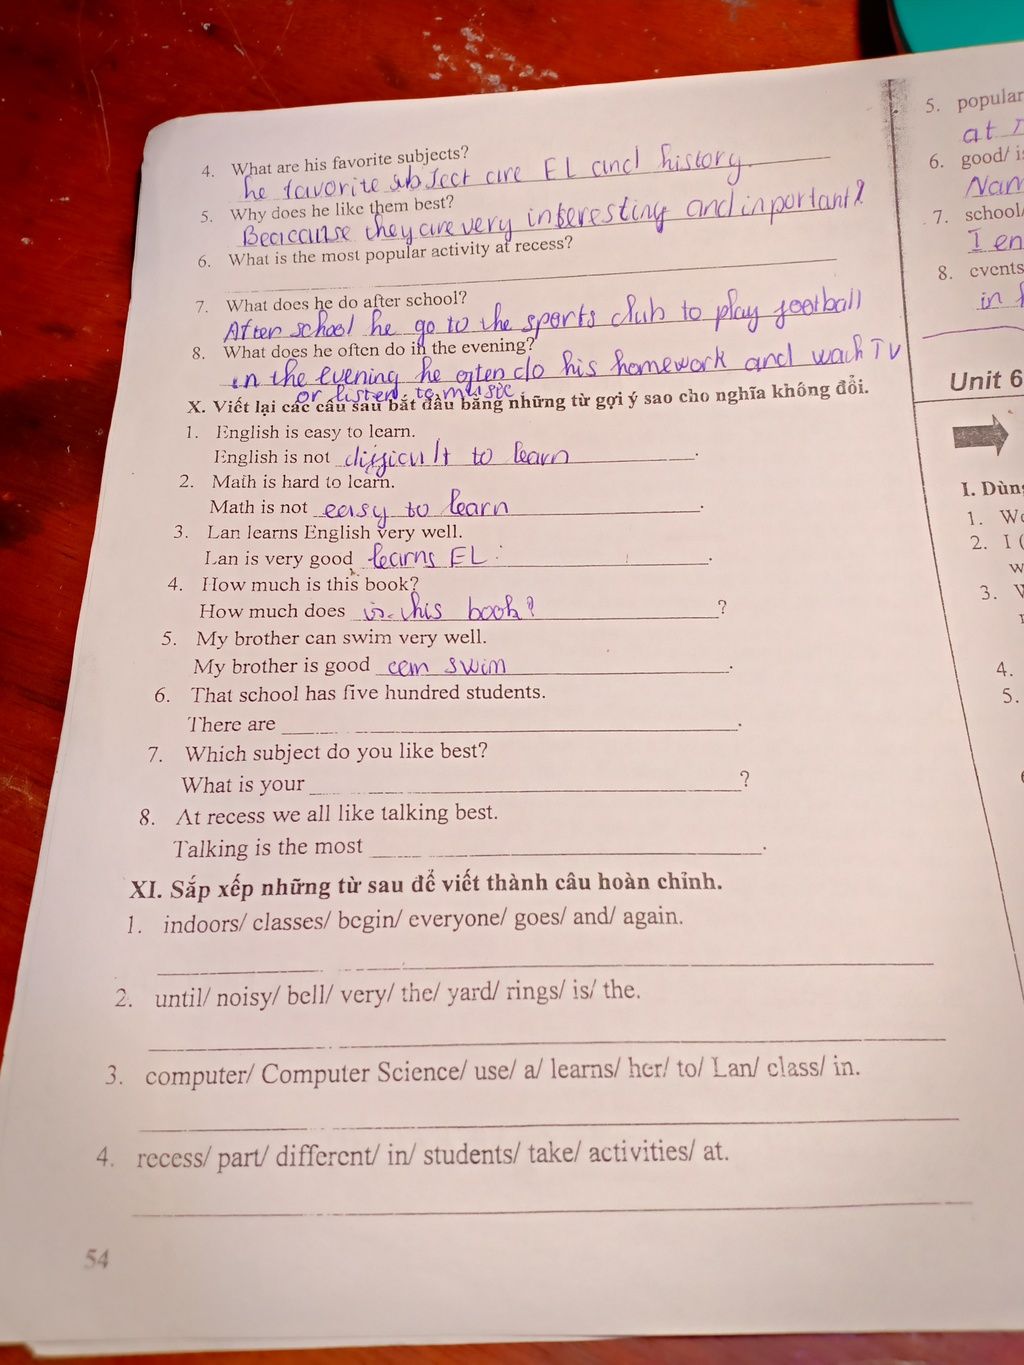 4. What are his favorite subjects?
he favorite subject are EL and history.
5. Why does he like them best?
Beacause they are very interesting and inportant?
6. What is the most popular activity at recess?
7. What does he do after school?
After school he go to the sports club to play football
8. What does he often do in the evening?
in the evening he often do his homework and wach TV
or listen to music
X. Viết lại các câu sau bắt đầu bằng những từ gợi ý sao cho nghĩa không đổi.
1. English is easy to learn.
English is not difficult to learn.
2. Math is hard to learn.
Math is not easy to learn.
3. Lan learns English very well.
Lan is very good learns EL.
4. How much is this book?
How much does is this book? ?
5. My brother can swim very well.
My brother is good can swim.
6. That school has five hundred students.
There are .
7. Which subject do you like best?
What is your ?
8. At recess we all like talking best.
Talking is the most .
XI. Sắp xếp những từ sau để viết thành câu hoàn chỉnh.
1. indoors/ classes/ begin/ everyone/ goes/ and/ again.
2. until/ noisy/ bell/ very/ the/ yard/ rings/ is/ the.
3. computer/ Computer Science/ use/ a/ learns/ her/ to/ Lan/ class/ in.
4. recess/ part/ different/ in/ students/ take/ activities/ at.
54
5. popular
at
6. good/
Nam
7. school/
I en
8. events
in
Unit 6
I. Dùng
1.
2. I (
w
3.
4.
5.